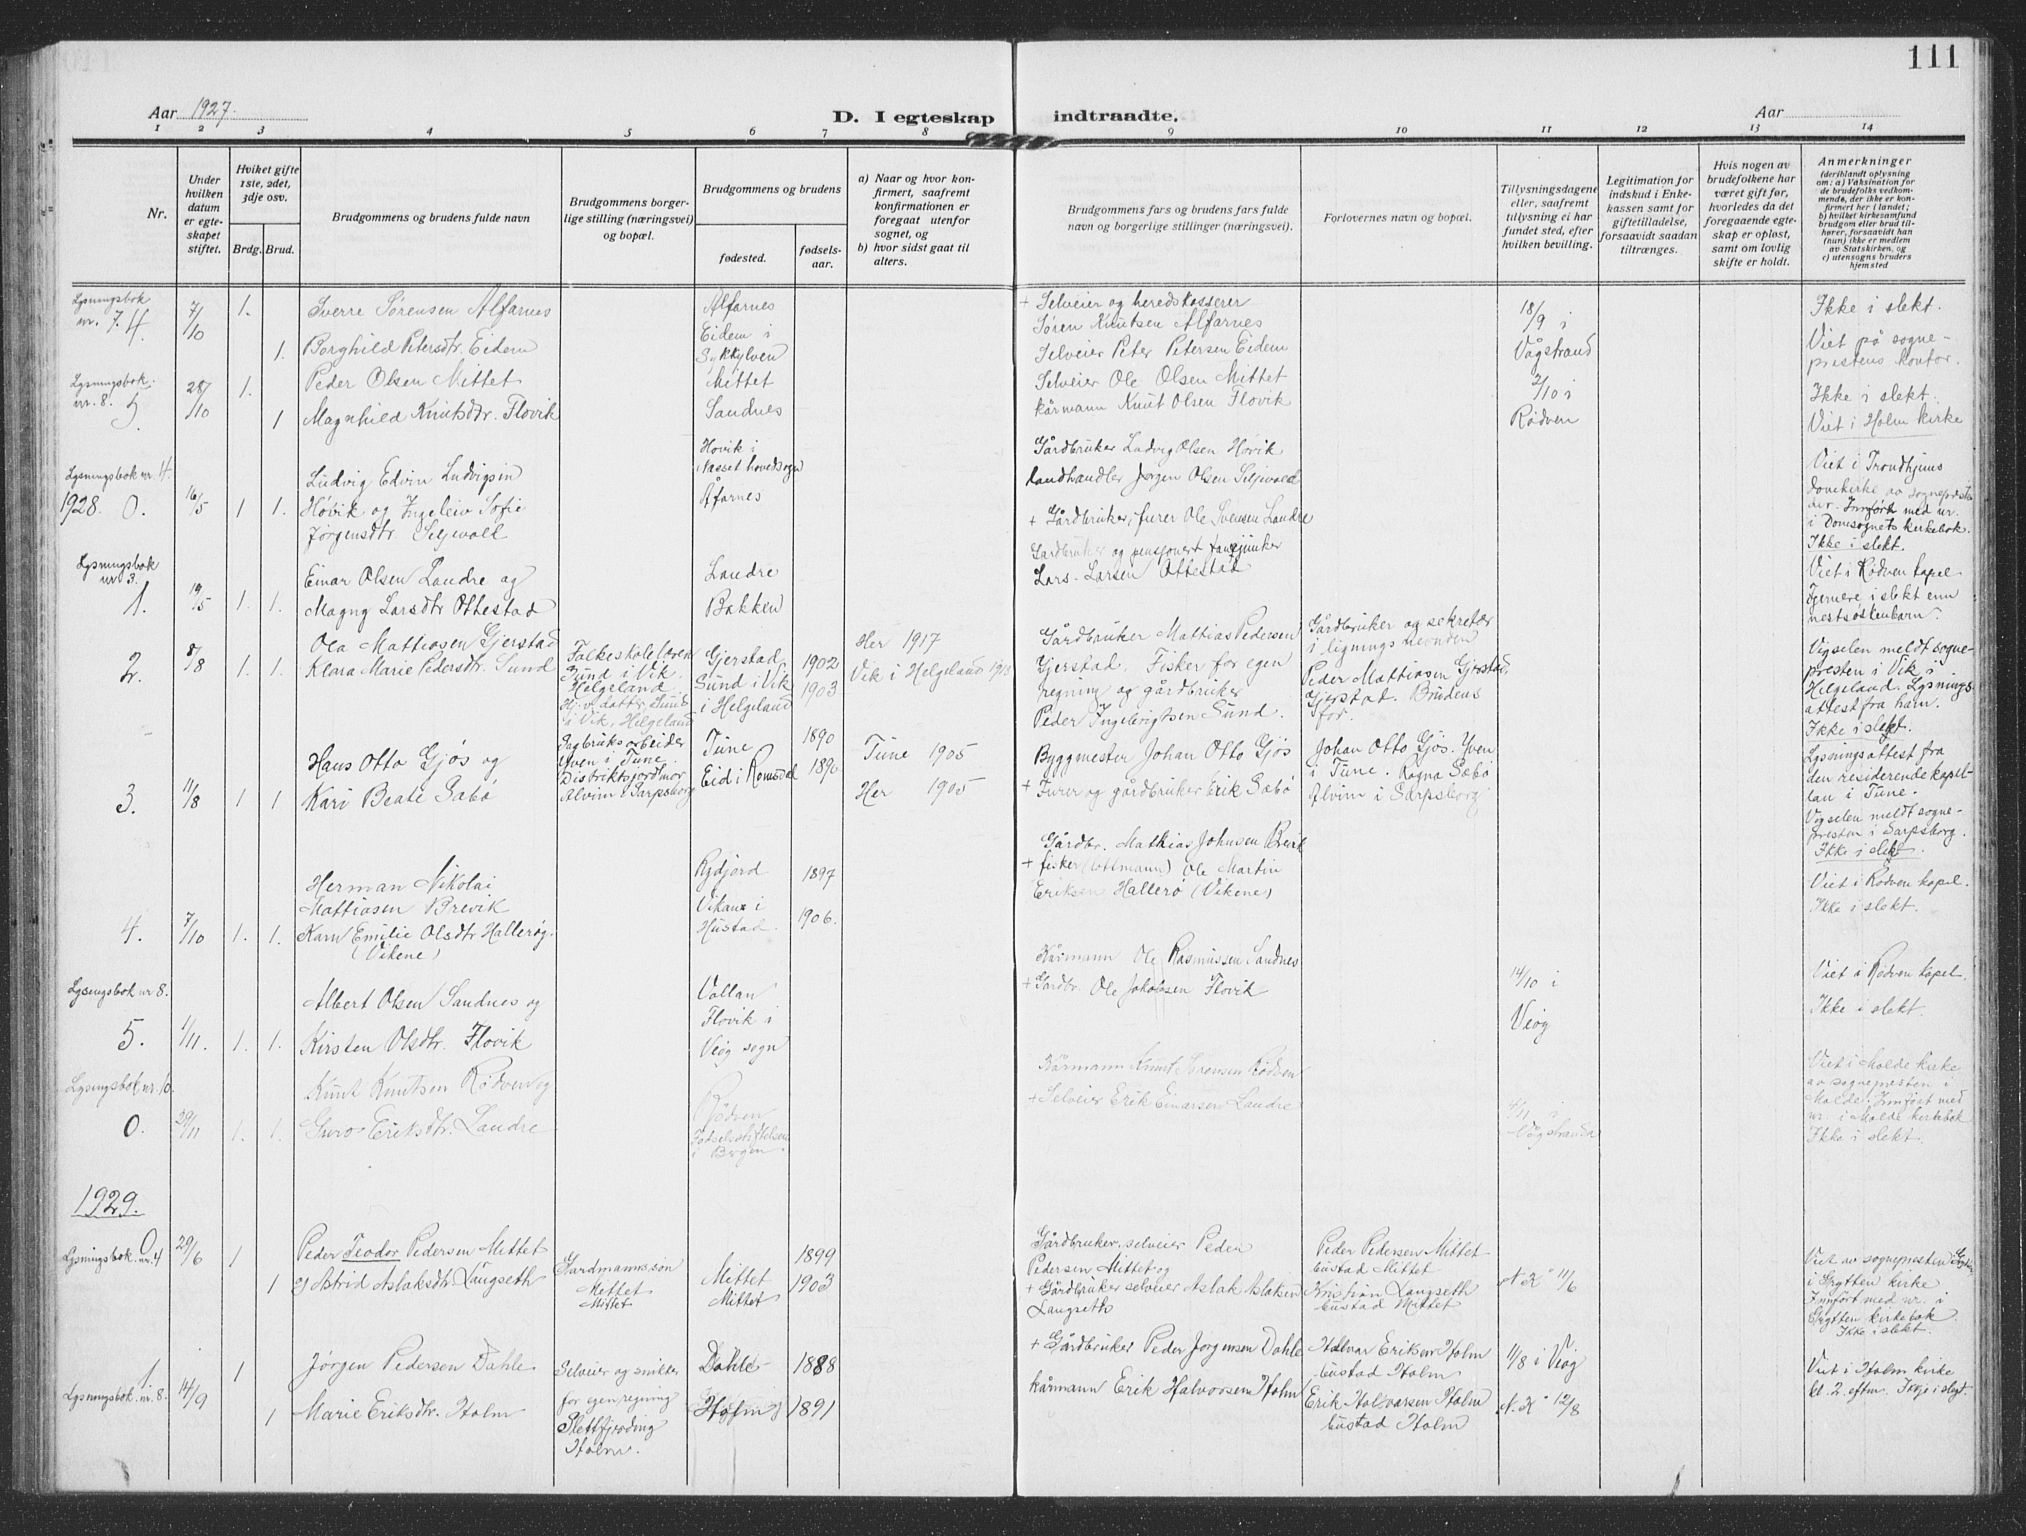 111
Aar 1927.
D. I egteskap indtraadte.
Aar
1 2 3 4 5 6 7 8 9 10 11 12 13 14
Nr.
Under
hvilken
datum
er egte-
skapet
stiftet.
Hviket gifte
1ste, 2det,
3dje osv.
Brdg. Brud.
Brudgommens og brudens fulde navn
Brudgommens borger-
lige stilling (næringsvei)
og bopæl.
Brudgommens og brudens
fødested.
fødsels-
aar.
a) Naar og hvor kon-
firmert, saafremt
konfirmationen er
foregaat utenfor
sognet, og
b) hvor sidst gaat til
alters.
Brudgommens fars og brudens fars fulde
navn og borgerlige stillinger (næringsvei).
Forlovernes navn og bopæl.
Tillysningsdagene
eller, saafremt
tillysning ei har
fundet sted, efter
hvilken bevilling.
Legitimation for
indskud i Enke-
kassen samt for
giftetilladelse,
forsaavidt saadan
tiltrænges.
Hvis nogen av
brudefolkene har
været gift før,
hvorledes da det
foregaaende egte-
skap er opløst,
samt om lovlig
skifte er holdt.
Anmerkninger
(deriblandt oplysning
om: a) Vaksination for
de brudefolks vedkom-
mende, der ikke er kon-
firmert her i landet;
b) hvilket kirkesamfund
brudgom eller brud til-
hører, forsaavidt han
(hun) ikke er medlem
av Statskirken, og
c) utensogns bruders
hjemsted
Lysningsbok
nr. 7. 4.
7/10
1.
Sverre Sørensen Alfarnes
Alfarnes
+ Selveier og heredskasserer
Søren Knutsen Alfarnes
18/9 i
Vågstrand
Ikke i slekt.
1.
Borghild Petersdtr. Eidem
Eidem i
Sykkylven
Selveier Peter Petersen Eidem
Viet på sogne-
prestens kontor.
Lysningsbok.
nr. 8. 5.
28/10
1.
Peder Olsen Mittet
Mittet
Selveier Ole Olsen Mittet
2/10 i
Rødven
Ikke i slekt.
1
Magnhild Knutsdtr. Flovik
Sandnes
kårmann Knut Olsen Flovik
Viet i Holm kirke
Lysningsbok nr. 4.
1928. 0.
16/5
1 1.
Ludvig Edvin Ludvigsen
Høvik og Ingeleiv Sofie
Jørgensdtr. Seljevoll
Hovik i
Nesset hovedsogn
Åfarnes
Gårdbruker Ludvig Olsen Høvik
Landhandler Jørgen Olsen Seljevold
Viet i Trondhjems
domkirke av sogneprest
Innført med nr.
i Domsognets kirkebok.
Ikke i slekt.
Lysningsbok
nr 3.
1.
19/5
1. 1.
Einar Olsen Landre og
Magny Larsdtr Ottestad
Landre
Bakken
+ Gårdbruker, furer Ole Svensen Landre
Gardbruker og pensjonert fanejunker
Lars Larsen Ottestad
Viet i Rødven kapel
Fjernere i slekt enn
nestsøskenbarn.
2.
8/8
1. 1.
Ola Mattiasen Gjerstad
Klara Marie Pedersdtr. Sund
Folkeskolelærer
Sund i Vik.
Helgeland
H.v. datter, Sund
i Vik, Helgeland
Gjerstad
Sund i Vik
i Helgeland
1902
1903
Her 1917
Vik i Helgeland 1918
Gårdbruker Mattias Pedersen
Gjerstad. Fisker for egen
regning og gårdbruker
Peder Ingebrigtsen Sund.
Gårdbruker og sekretær
i lignings nevnden
Peder Mattiasen Gjerstad,
Gjerstad. Brudens
far.
Vigselen meldt sogne-
presten i Vik i
Helgeland. Lysnings-
attest fra ham.
Ikke i slekt.
3.
11/8
1 1
Hans Otto Gjøs og
Kari Beate Sæbø
Sagbruksarbeider
Yven i Tune.
Distriktsjordmor
Alvim i Sarpsborg
Tune
Eid i Romsdal
1890
1890
Tune 1905
Her 1905
Byggmester Johan Otto Gjøs
+ Furer og gårdbruker Erik Sæbø
Johan Otto Gjøs. Yven
i Tune. Ragna Sæbø
Alvim i Sarpsborg
Lysningsattest fra
den residerende kapel-
lan i Tune.
Vigselen meldt sogne-
presten i Sarpsborg.
Ikke i slekt
4.
7/10
1. 1.
Herman Nikolai
Mattiasen Brevik
Karn Emilie Olsdtr Hallerøg.
(Vikene)
Rydjord
Vikane i
Hustad.
1897
1906.
Gårdbr. Mathias Johnsen Brevik
+ fisker (Lottmann) Ole Martin
Eriksen Hallerø (Vikene)
Viet i Rødven kapel.
Ikke i slekt.
Lysningsbok nr 8.
5.
1/11.
1. 1.
Albert Olsen Sandnes og
Kirsten Olsdtr. Flovik
Vollan
Flovik i
Veøg sogn
Kårmann Ole Rasmussen Sandnes
+ Gårdbr. Ole Jakobsen Flovik
14/10 i
Veøg
Viet i Rødven kapel.
Ikke i slekt.
Lysningsbok nr. 10.
0.
29/11
1. 1.
Knut Knutsen Rødven og
Guro Eriksdtr. Landre
Rødven
Fødselsstiftelsen
i Bergen.
Kårmann Knut Sørensen Rødven
+ Selveier Erik Einarsen Landre
4/11 i
Vågstranda
Viet i Molde kirke
av sognepresten i
Molde. Innført med
nr. i Molde kirkebok
Ikke i slekt.
1929.
0
Lysningsbok nr. 4
29/6
1
Peder Teodor Pedersen Mittet
1
og Astrid Aslaksdtr. Langseth
Gardmannssøn
Mittet
Mittet
Mittet
Mittet
1899
1903
Gårdbruker, selveier Peder
Pedersen Mittet og
+ Gårdbruker selveier Aslak Aslaksen
Langseth
Peder Pedersen Mittet
bustad Mittet
Kristian Langseth
bustad Mittet
N. K. 11/6
Viet av sognepresten i
i Grytten kirke
Innført med nr. i
Grytten kirkebok.
Ikke i slekt.
1
Lysningsbok nr. 8.
14/9
1
Jørgen Pedersen Dahle
1
Marie Eriksdtr. Holm
Selveier og snikker
for egen regning
Slettfjerding
Holm.
Dahle
Holm
1888
1891
+ Gårdbruker Peder Jørgensen Dahle
kårmann Erik Halvorsen Holm
Halvar Eriksen Holm
bustad Holm
Erik Halvarsen Holm
bustad Holm
11/8 i Veøg
N. K. 12/8
Viet i Holm kirke
kl. 2 eftm. Ikke i slegt.